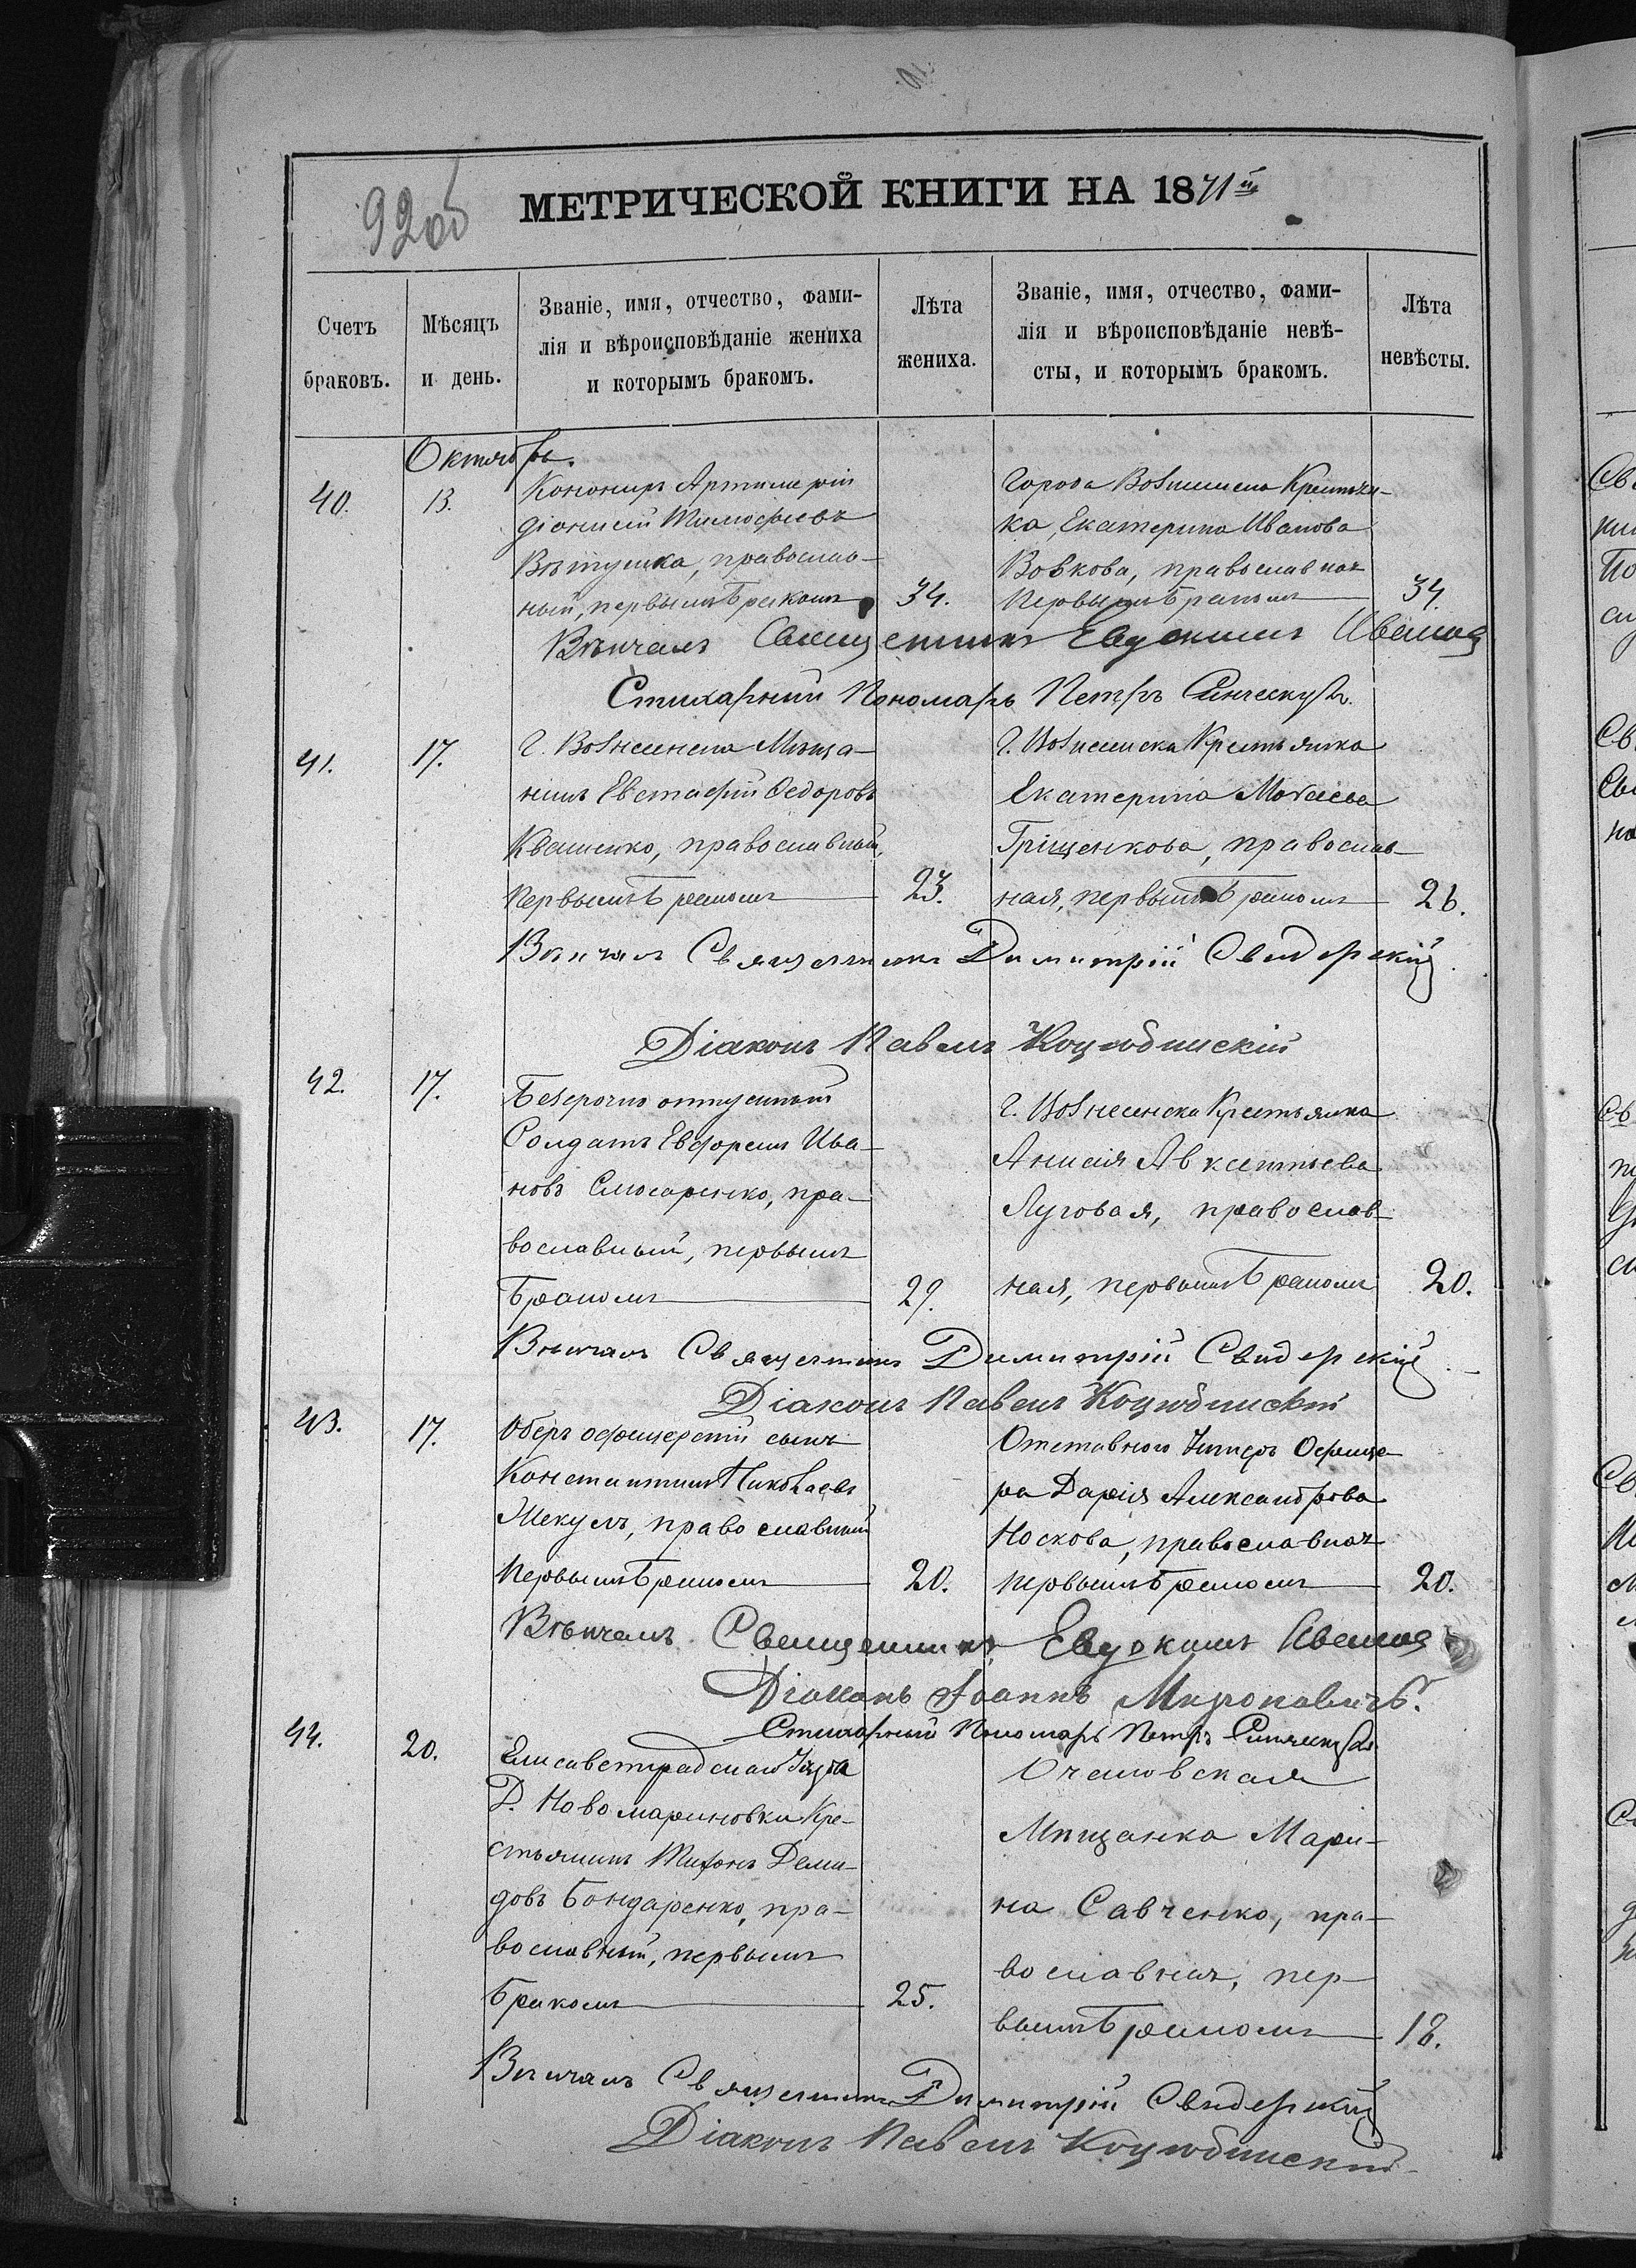 92об
МЕТРИЧЕСКОЙ КНИГИ НА 1871й
Счетъ браковъ.
Мѣсяцъ и день.
Званіе, имя, отчество, фами-
лія и вѣроисповѣданіе жениха
и которымъ бракомъ.
Лѣта жениха.
Званіе, имя, отчество, фами-
лія и вѣроисповѣданіе невѣ-
сты, и которымъ бракомъ.
Лѣта невѣсты.
Октябрь.
40.
13.
Конониръ Артилеріи
Діонисій Тимофѣевъ
Вѣтушка, православ-
ный, первымъ бракомъ
34.
Города Вознесенска Крестьян-
ка, Екатерина Иванова
Вовкова, православная
первымъ бракомъ
34.
Вѣнчалъ Священникъ Евдокимъ Иванов
Стихарный Пономарь Петръ
41.
17.
Г. Вознесенска Мѣща-
нинъ Евстафій Ѳедоровъ
Квашенко, православный,
первымъ бракомъ
23.
Г. Вознесенска Крестьянка
Екатерина Моѵсеева
Гріщенкова, православ-
ная, первымъ бракомъ
26.
Вѣнчал Священникъ Димитрій Свидерскій.
Діаконъ Павелъ Коцюбинскій
42.
17.
Безсрочно отпускной
Солдатъ Евфремъ Ива-
новъ Слюсаренко, пра-
вославный, первымъ
бракомъ
29.
Г. Вознесенска Крестьянка
Анисія Авксентьева
Луговая, православ-
ная, первымъ бракомъ
20.
Вѣнчалъ Священникъ Димитрій Свидерскій
Діаконъ Павелъ Коцюбинскій
43.
17.
Оберъ офицерскій сынъ
Константинъ Николаевъ
Мекулъ, православный
первымъ бракомъ
20.
Отставного Унтеръ Офице-
ра Дарія Александрова
Носкова, православная
первымъ бракомъ
20.
Вѣнчалъ Священникъ Евдокимъ Иванов
Діаконъ Іоаннъ Мироновичъ.
Стихарный Пономарь Петръ
44.
20.
Елисаветградскаго Уѣзда
Д. Новомариновки Кре-
стьянинъ Тихонъ Деми-
довъ Бондаренко, пра-
вославный, первымъ
бракомъ
25.
Очаковская
Мѣщанка Мари-
на Савченко, пра-
вославная, пер-
вымъ бракомъ
18.
Вѣнчалъ Священникъ Димитрій Свидерскій
Діаконъ Павелъ Коцюбинскій